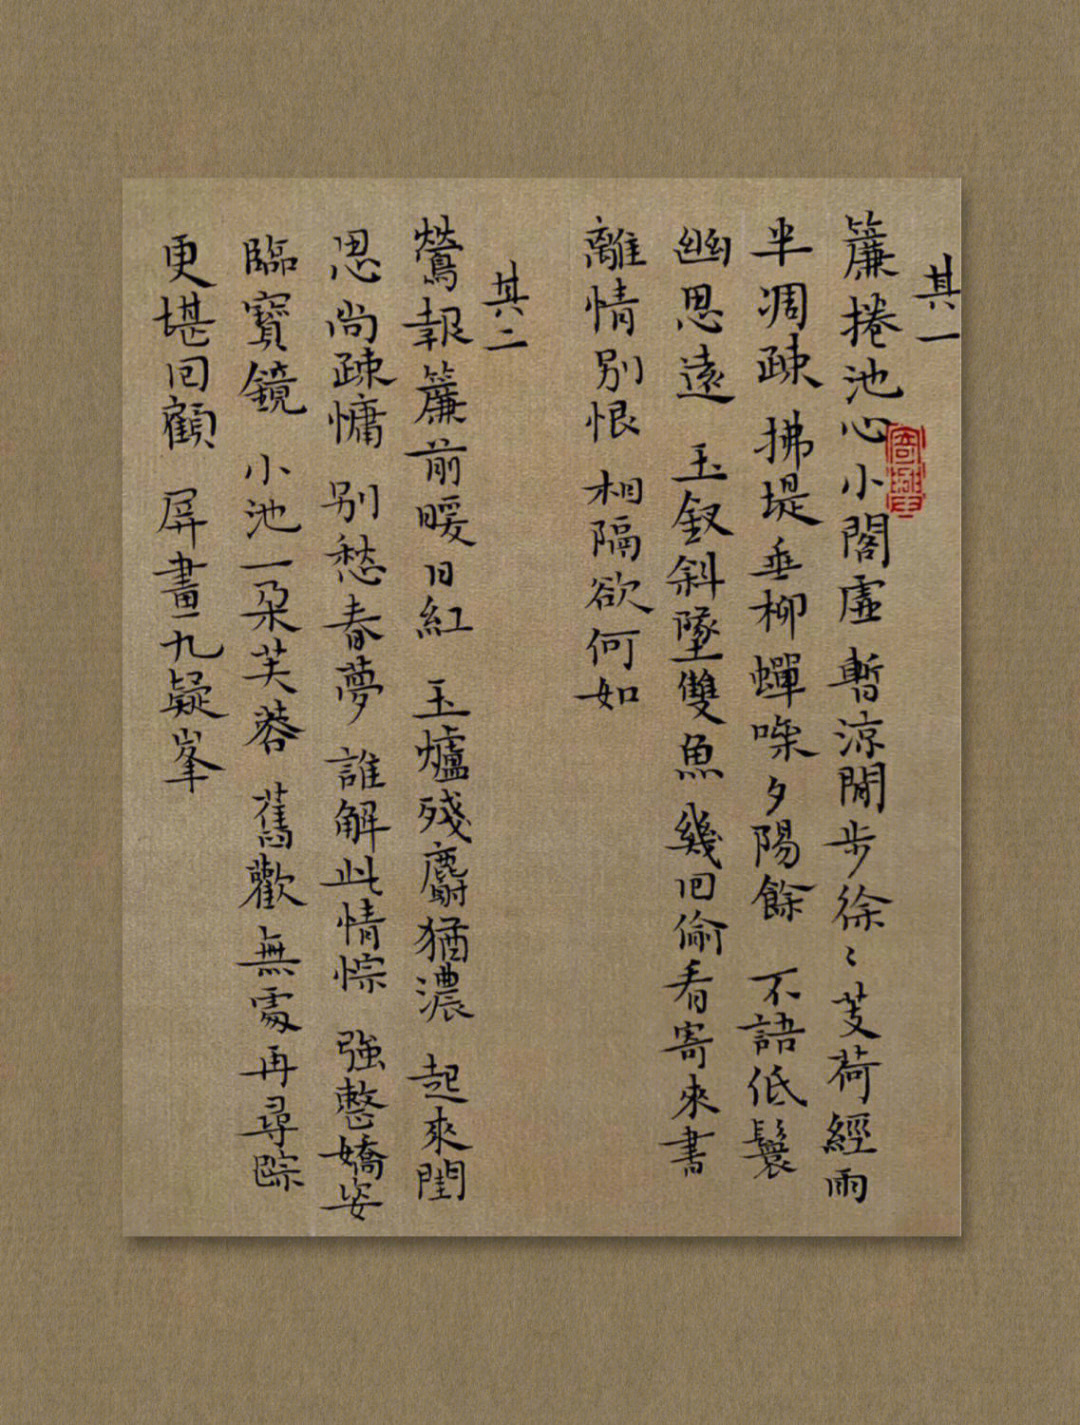 其一
簾捲池心小閣虛 暫涼閒步徐〻芰荷經雨
半凋疎 拂堤垂柳 蟬噪夕陽餘 不語低鬟
幽思遠 玉釵斜墜雙魚 幾回偷看寄來書
離情別恨 相隔欲何如
其二
鶯報簾前暖日紅 玉爐殘麝猶濃 起來閨
思尚疎慵 別愁春夢 誰解此情悰 強整嬌姿
臨寶鏡 小池一朵芙蓉 舊歡無處再尋蹤
更堪回顧 屏畫九疑峯